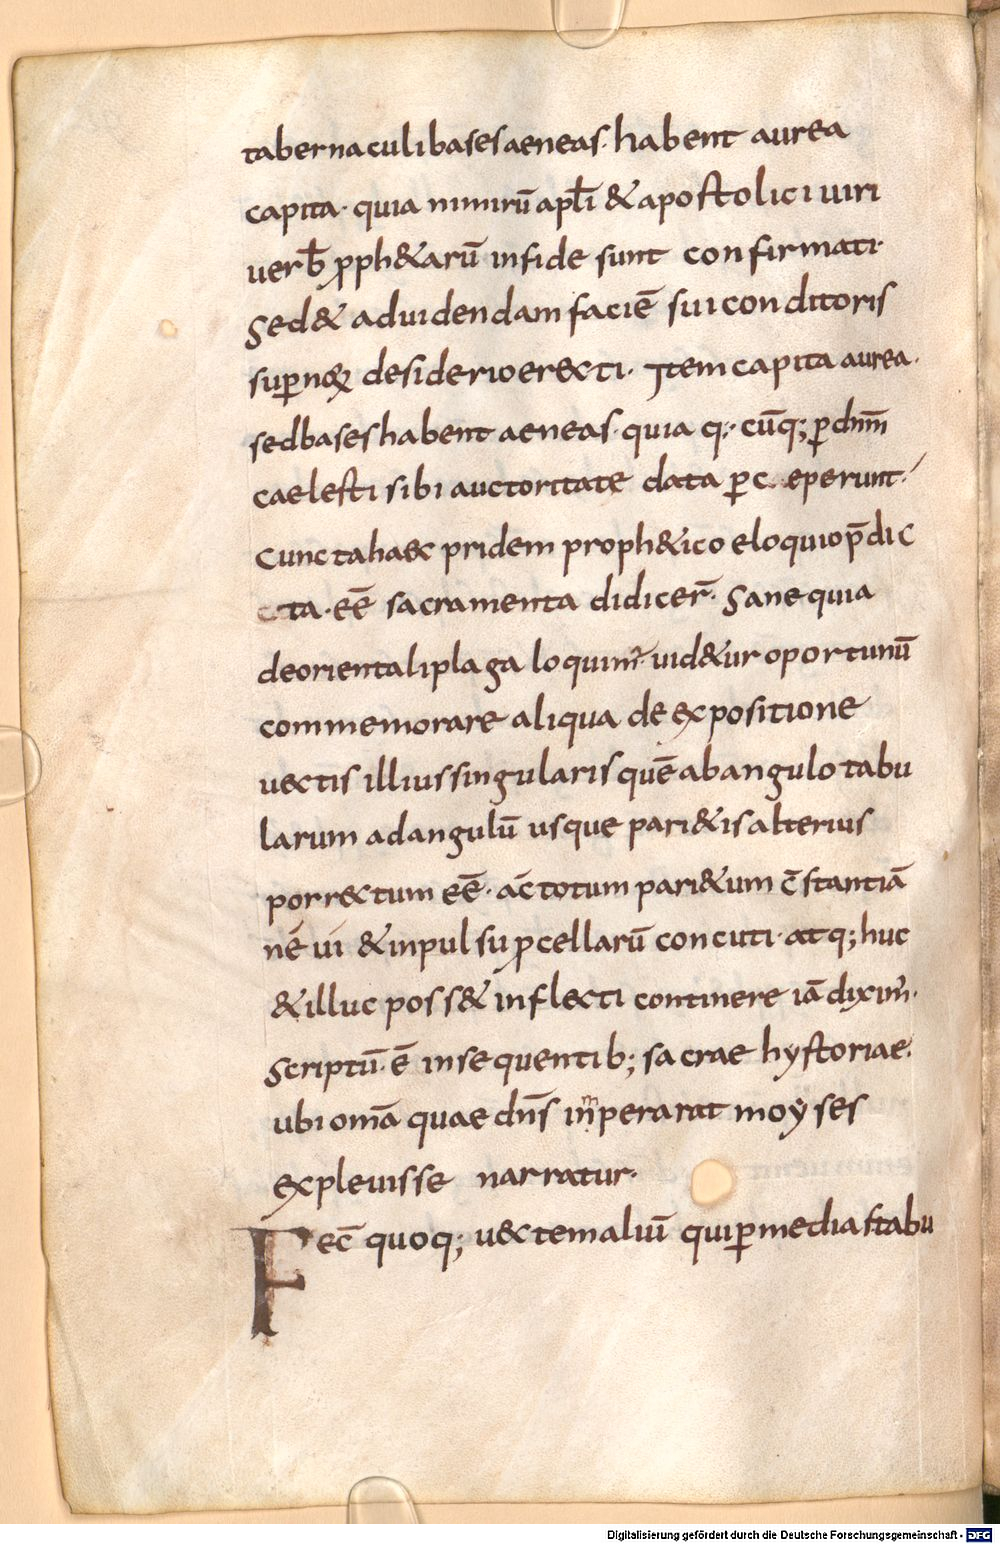 tabernaculi bases aeneas· habent aurea
capita· quia nimirū apłi & apostolici uiri
uerb̄ ꝓph&arū in fide sunt confirmati·
Sed & ad uidendam faciē sui conditoris
suꝑnoꝝ desiderio erecti· Item capita aurea·
sed bases habent aeneas· quia q·; cūq; ꝑ dnm̄
caelesti sibi auctoritate data ꝑc eperunt·
Cuncta haec pridem proph&ico eloquio p̄dic
ta· eē sacramenta didicer̄· Sane quia
de orientali plaga loquim᷒· uid&ur oportunū
commemorare aliqua de expositione
uectis illius singularis quē ab angulo tabu
larum ad angulū usque pari&is alterius
porrectum eē· ac̄ totum pari&um c̄stantiā
nē ui & inpulsu ꝓcellarū concuti· atq; huc
& illuc poss& inflecti continere iā dixim᷒·
Scriptū· ē in sequentib; sacrae hystoriae·
ubi om̄a quae dn̄s imperarat moẏses
explevisse narratur·
Fec̄ quoq; uectem aliū qui ꝑ medias tabu
Digitalisierung gefördert durch die Deutsche Forschungsgemeinschaft - DFG